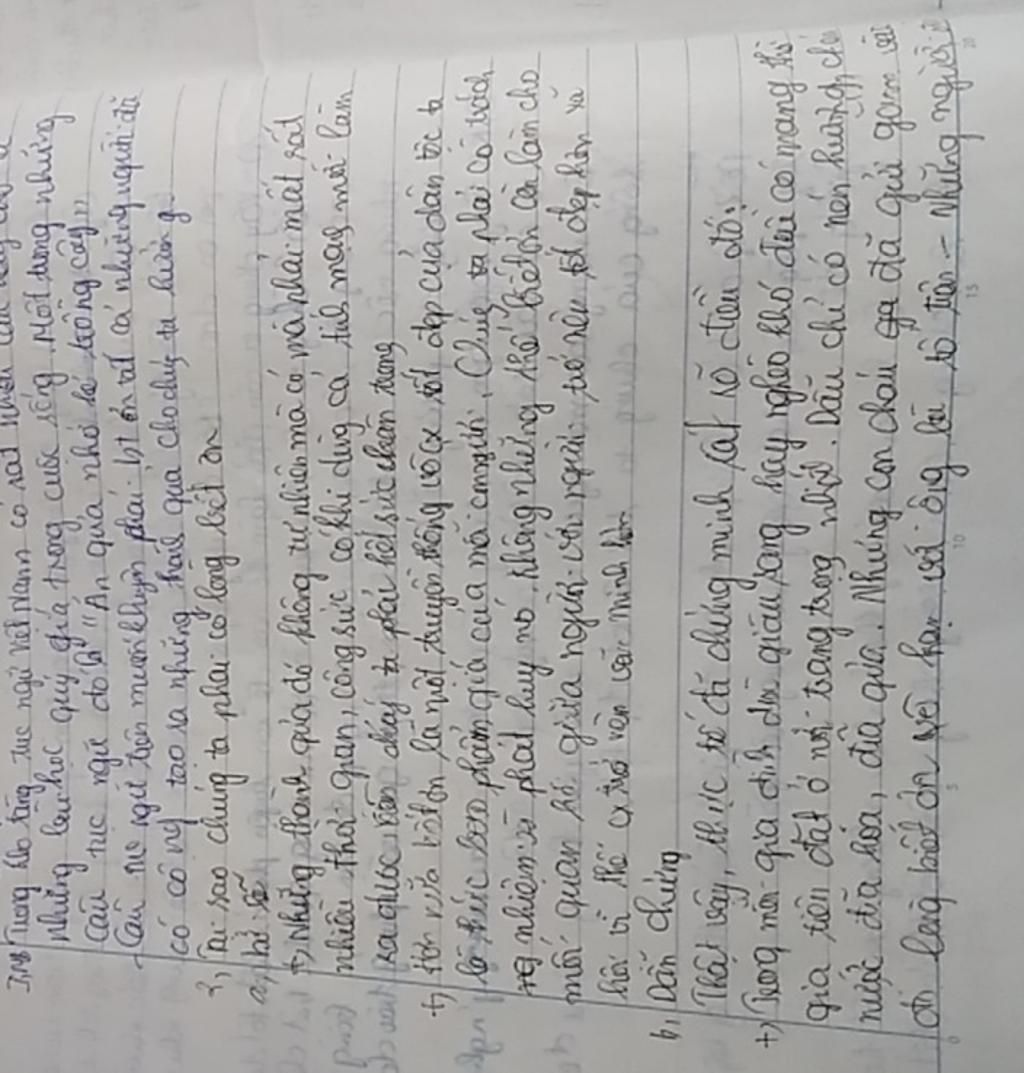 Trong kho tàng tục ngữ Việt Nam có rất nhiều câu
những bài học quý giá trong cuộc sống. Một trong những
câu tục ngữ đó là " Ăn quả nhớ kẻ trồng cây"
- Câu tục ngữ trên muốn khuyên phải biết ơn tất cả những người đã
có công tạo ra những thành quả cho chúng ta hưởng
2, Tại sao chúng ta phải có lòng biết ơn
a,
+, Những thành quả đó không tự nhiên mà có mà phải mất rất
nhiều thời gian, công sức có khi dùng cả tính mạng mới làm
ra được vì vậy ta phải hết sức chân trọng
+, Hơn nữa biết ơn là một truyền thống vô cx tốt đẹp của dân tộc ta
là thước đo phẩm giá của mỗi con người. Chúng ta phải có trách
nhiệm và phát huy nó. Không những thế biết ơn còn làm cho
mối quan hệ giữa người với người trở nên tốt đẹp hơn xã
hội vì thế cx trở nên văn minh hơn
b, Dẫn chứng
Thật vậy, thực tế đã chứng minh rất rõ điều đó:
+, Trong mỗi gia đình dù giàu sang hay nghèo khó đều có mang thờ
gia tiên đặt ở nơi trang trọng nhất. Dẫu chỉ có nén hương, chén
nước, đĩa hoa, đĩa quả. Những con cháu đã gửi gắm vào
đó lòng biết ơn vô hạn với ông bà tổ tiên - Những người
0 5 10 15 20